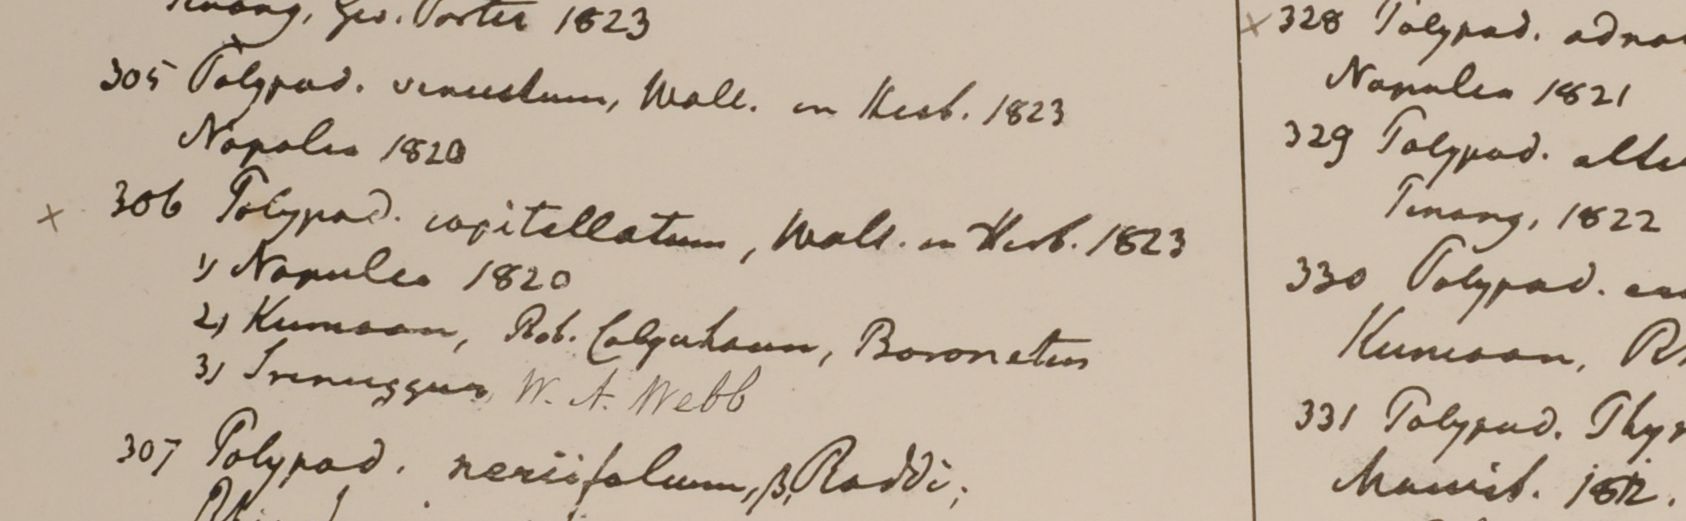 Penang, Geo. Porter 1823
305 Polypod. venustum, Wall. in Herb. 1823
Napalia 1820
306 Polypod. capitellatum, Wall. in Herb. 1823
1) Napalia 1820
2) Kumaon, Rob. Colquhoun, Baronetus
3) Srenuggur, W. A. Webb
307 Polypod. neriifolium, β, Raddi;
328 Polypod. adna
Napalia 1821
329 Polypod. alte
Penang, 1822
330 Polypod.
Kumaon, R
331 Polypod. Thyr
Maurit. 1812.